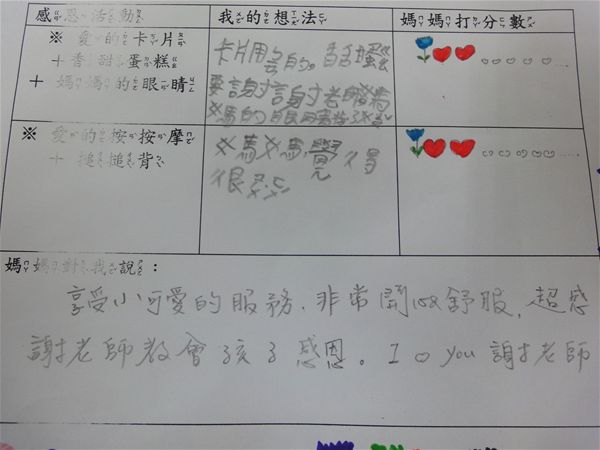 感恩活動
我的想法
媽媽打分數
※ 愛的卡片
+ 香甜蛋糕
+ 媽媽的眼睛
卡片用 的。
要謝謝老師
媽的眼睛
※ 愛的按按摩
+ 搥搥背
媽媽覺得
很
媽媽對我說：
享受小可愛的服務，非常開心&舒服，超感
謝老師教會孩子感恩。I ♡ you 謝老師